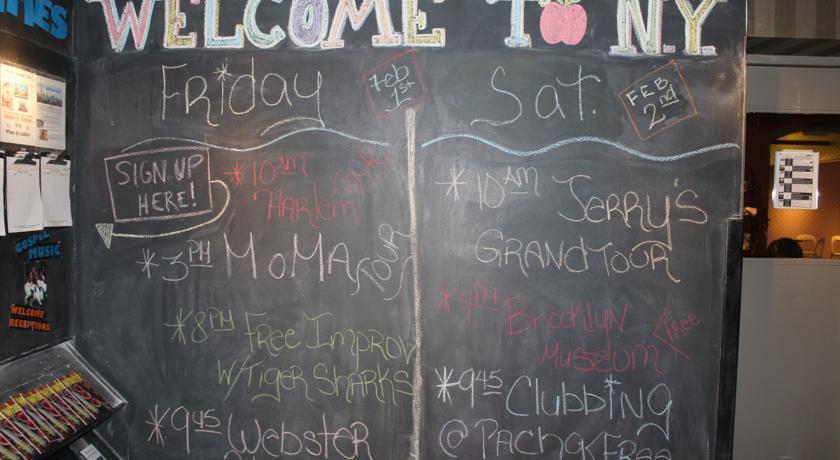 WELCOME TO N.Y
Friday
Feb 1st
SIGN UP HERE!
*10AM Harlem
*3PM MoMA TOUR
*8PM Free Improv
w/Tiger Sharks
*945 Webster
Sat.
FEB 2nd
*10AM Jerry's
GRAND TOUR
*4PM Brooklyn
Museum Free
*945 Clubbing
@ Pacha Free
GOSPEL
MUSIC
WELCOME
RECEPTIONS